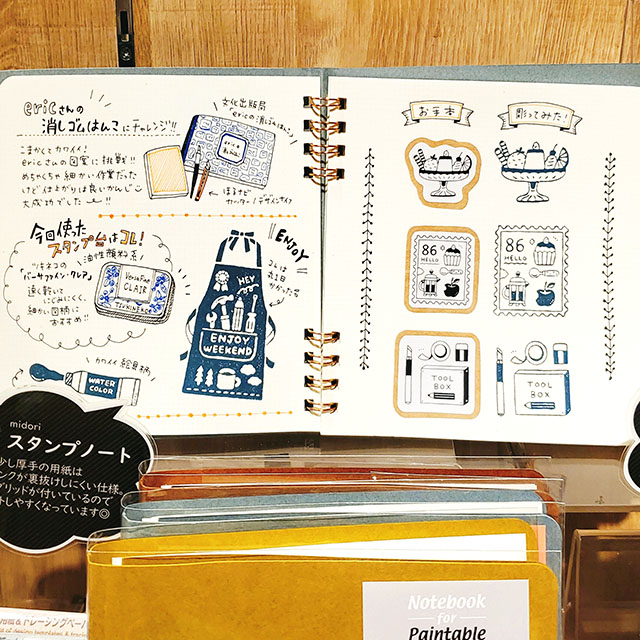 ericさんの
消しゴムはんこにチャレンジ!!
こまかくてカワイイ!
ericさんの図案に挑戦!!
めちゃくちゃ細かい作業だった
けど仕上がりは良いかんじ
大成功でした
文化出版局
「ericの消しゴムはんこ」
eric
カッター/デザインナイフ
今回使った
スタンプ台はコレ!
油性顔料系
ツキネコの
「バーサファイン・クレア」
速く乾いて
にじみにくく、
細かい図柄に
おすすめ!!
VersaFine
CLAIR
TSUKINEKO
カワイイ絵具柄
WATER
COLOR
ENJOY
コレは
HEY
ENJOY
WEEKEND
お手本
彫ってみた!
86
HELLO
86
HELLO
TOOL
BOX
TOOL
BOX
midori
スタンプノート
少し厚手の用紙は
ンクが裏抜けしにくい仕様。
グリッドが付いているので
しやすくなっています◎
Notebook
for
Paintable